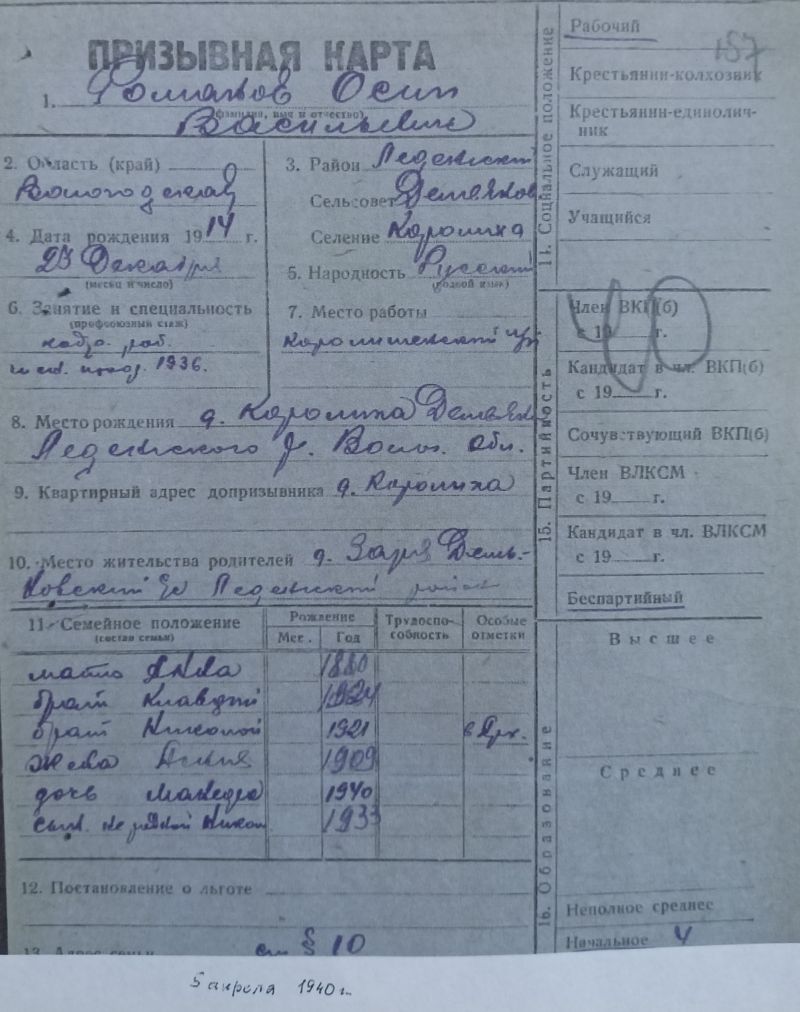 ПРИЗЫВНАЯ КАРТА
1. Романов Осип
(фамилия, имя и отчество)
Васильевич
2. Область (край)
Вологодская
3. Район Леденгский
Сельсовет Демьянов
Селение Королиха
4. Дата рождения 1914 г.
23 Декабря
(месяц и число)
5. Народность Русский
(родной язык)
6. Занятие и специальность
(профсоюзный стаж)
раб.
1936.
7. Место работы
8. Место рождения д. Королиха Демьян
Леденгского р. Волог. Обл.
9. Квартирный адрес допризывника д. Королиха
10. Место жительства родителей д. Заря Демья-
новский Леденгский район
11. Семейное положение
(состав семьи)
Рождение
Мес. Год
Трудоспо-
собность
Особые
отметки
мать Анна 1880
брат Клавдий 1924
брат Николай 1921 в Арх.
жена 1909
дочь 1940
сын не родной Никол 1933
12. Постановление о льготе
13. Адрес семьи см § 10
14. Социальное положение
157
Рабочий
Крестьянин-колхозник
Крестьянин-единолич-
ник
Служащий
Учащийся
15. Партийность
Член ВКП(б)
с 19 г.
Кандидат в чл. ВКП(б)
с 19 г.
Сочувствующий ВКП(б)
Член ВЛКСМ
с 19 г.
Кандидат в чл. ВЛКСМ
с 19 г.
Беспартийный
16. Образование
Высшее
Среднее
Неполное среднее
Начальное 4
5 апреля 1940 г.